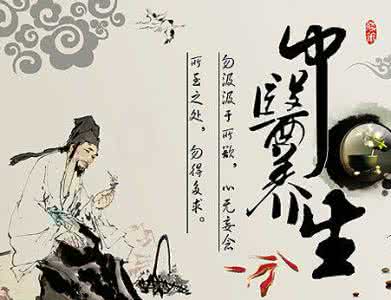 中醫养生
勿汲汲于所欲，心无妄会
所至之处，勿得多求。